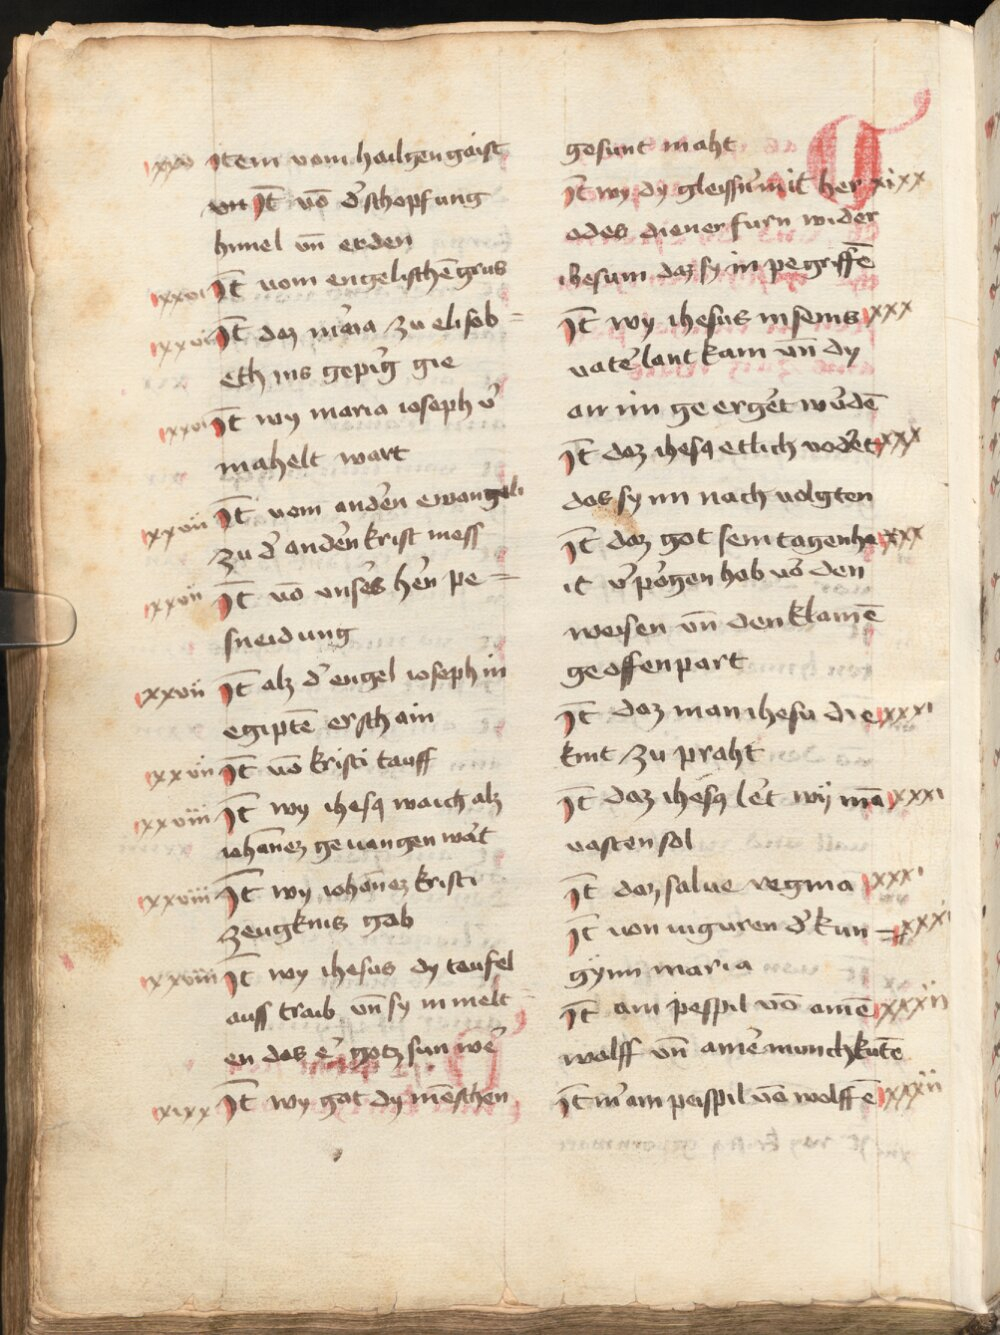 xxv item vom hailgen gaist
vn It vō d' schopfung
himel vn̄ erden
xxvi It vom engelischē grus
xxvi It daz m'aia zu elisab=
eth ins gepirg gie
xxvi It wy maria ioseph v'
mahelt wart
xxvii It vom andern ewangeli
zu d' andern krist mess
xxvii It vō unsers hern pe=
sneidung
xxvii It alz d' engel ioseph in
egiptē erschain
xxvii It vō kristi tauff
xxviii It wy ihesq waich alz
iohānez gevangen wart
xxviii It wy iohānez kristi
zeugknis gab
xxviii It wy ihesus dy teufel
auss traib vn̄ sy in melt=
en das er gotz sun wer
xixx It wy got dy mēschen
gesunt maht
It wy dy gleissner mit her xixx
odes diener furn wider
ihesum daz sy in pegriffē
It wy ihesus in seins xxx
vater lant kam vn̄ dy
an im ge ergert wurdē
It daz ihesq etlich vodert xxx
das sy im nach volgten
It daz got sein tagenha xxx
it v'porgen hab vō den
weisen vn̄ den klainē
geoffenpart
It daz man ihesu die xxxi
kint zu praht
It daz ihesq lert wij mā xxxi
vasten sol
It daz salve regina xxxi
It von viguren d' kun= xxxi
gynn maria
It ain peispil vō ainē xxxii
wolff vn̄ ainē munch kutē
It m' ain peispil vō wolffē xxxii